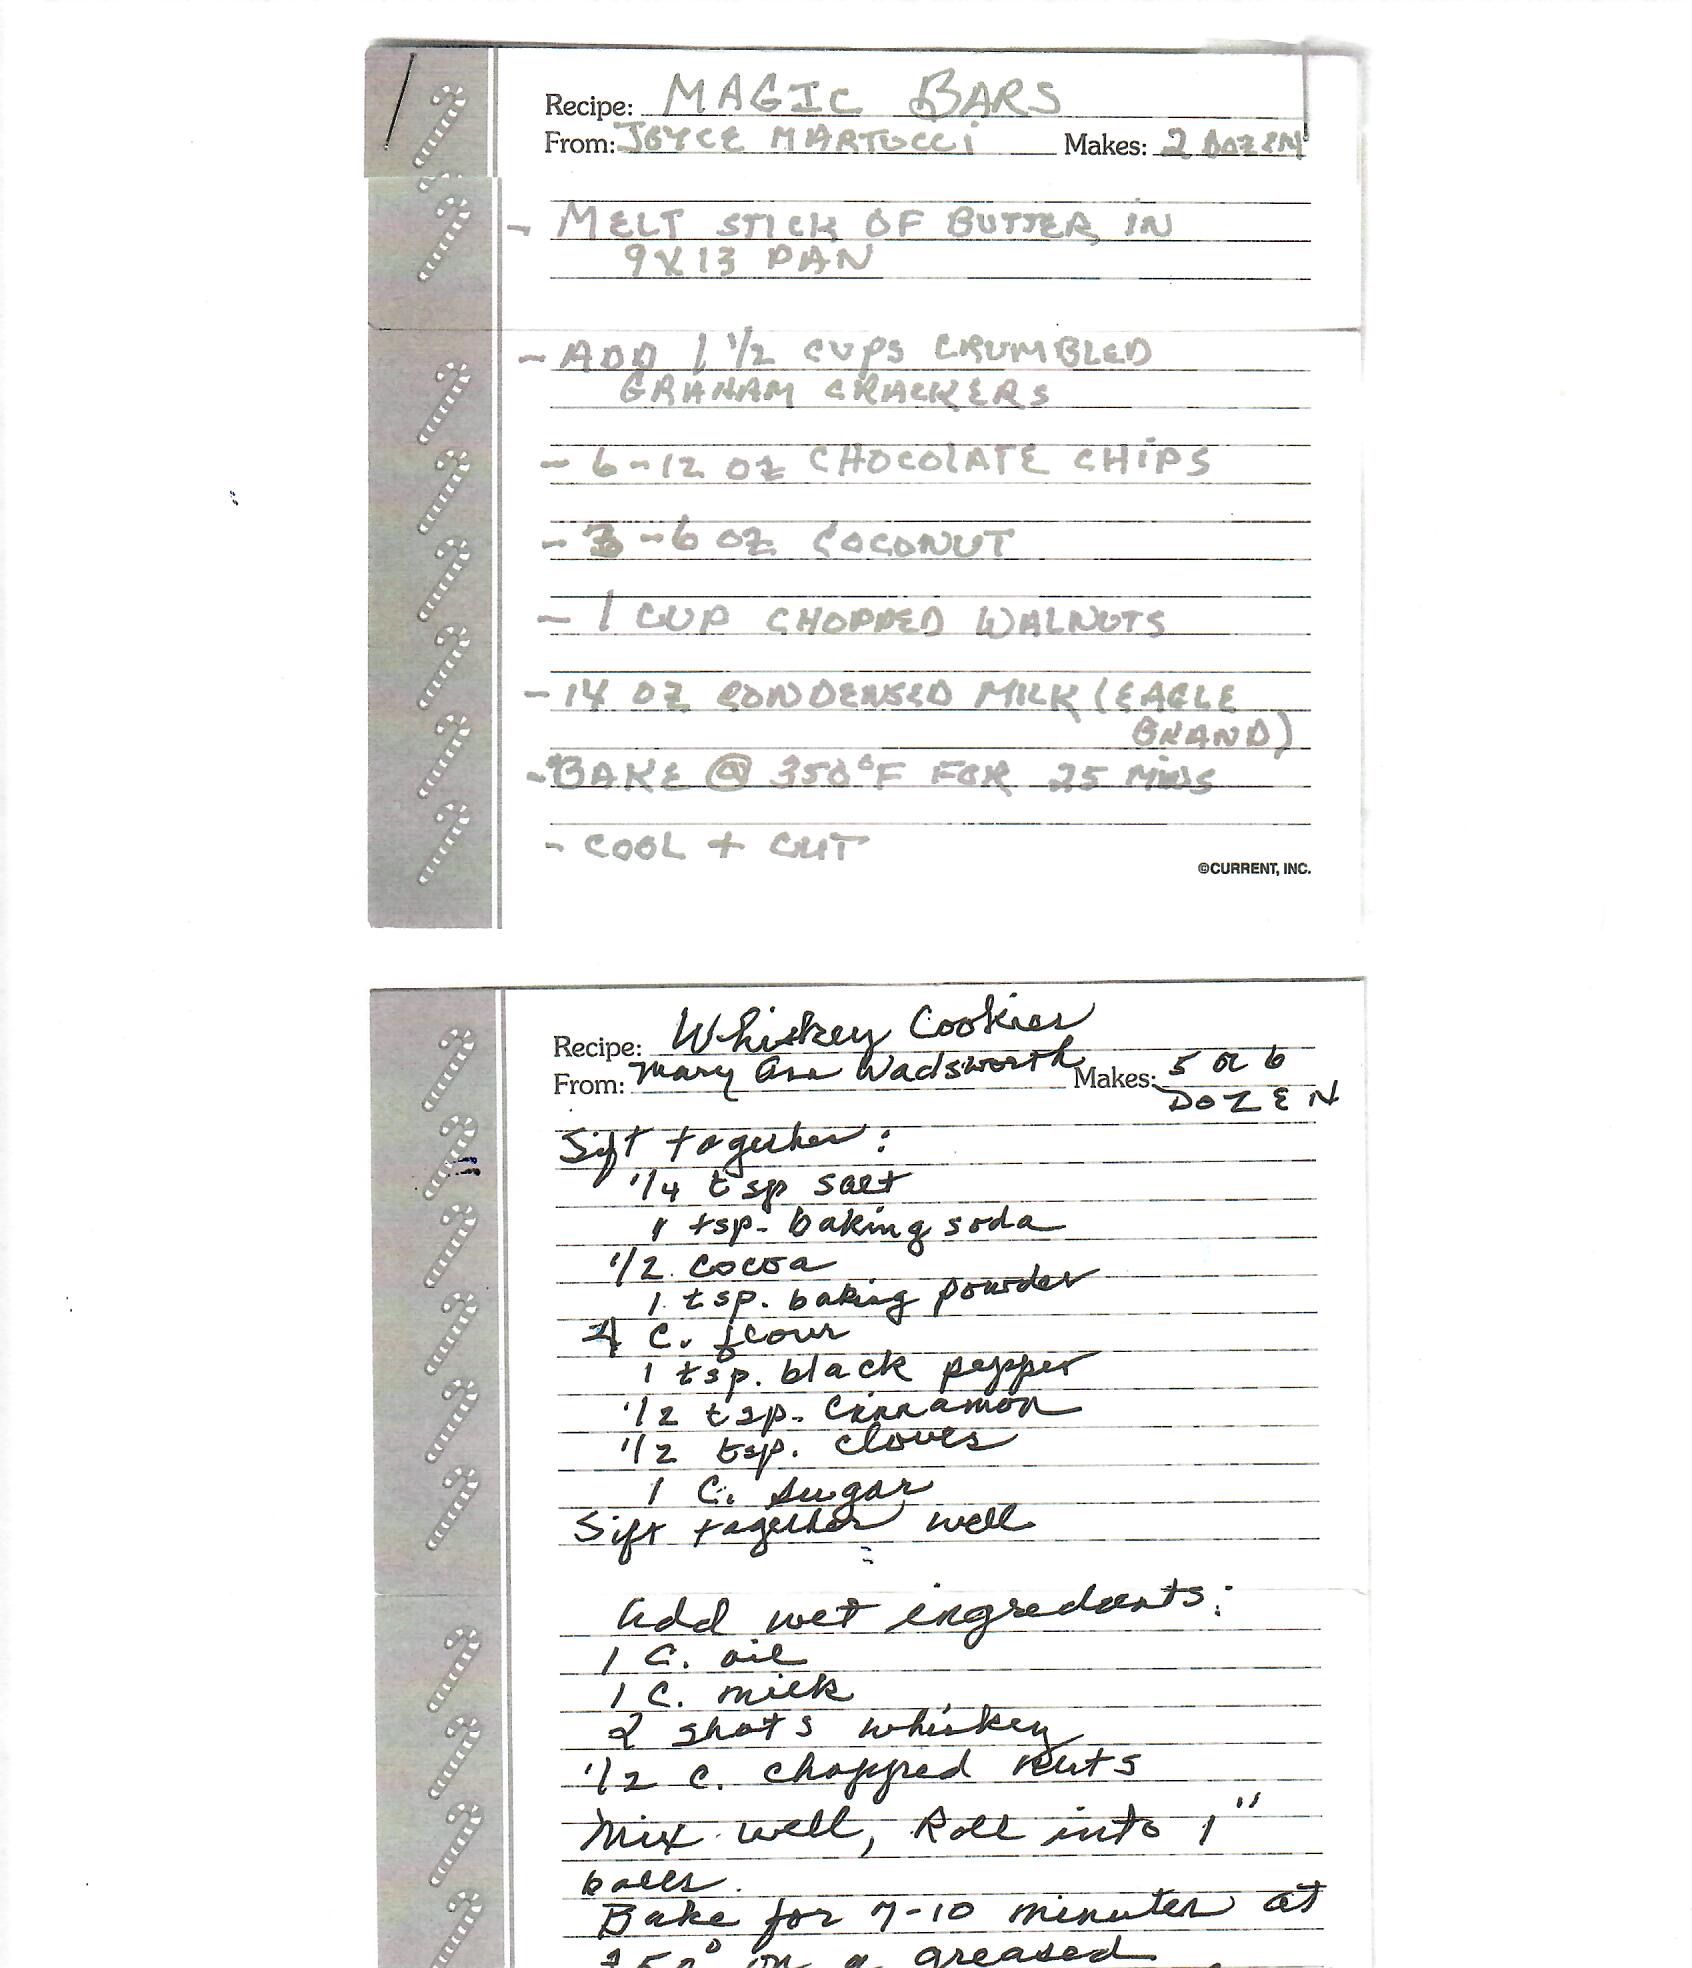 Recipe: MAGIC BARS
From: JOYCE MARTUCCI Makes: 2 DOZEN
- MELT STICK OF BUTTER IN
9X13 PAN
- ADD 1 1/2 CUPS CRUMBLED
GRAHAM CRACKERS
- 6-12 OZ CHOCOLATE CHIPS
- 3-6 OZ COCONUT
- 1 CUP CHOPPED WALNUTS
- 14 OZ CONDENSED MILK (EAGLE
BRAND)
- BAKE @ 350°F FOR 25 MINS
- COOL + CUT
©CURRENT, INC.
Recipe: Whiskey Cookies
From: Mary Ann Wadsworth Makes: 5 or 6
DOZEN
Sift together:
1/4 tsp salt
1 tsp. baking soda
1/2 cocoa
1 tsp. baking powder
4 C. flour
1 tsp. black pepper
1/2 tsp. cinnamon
1/2 tsp. cloves
1 C. sugar
Sift together well
Add wet ingredients:
1 C. oil
1 C. milk
2 shots whiskey
1/2 C. chopped nuts
Mix well, Roll into 1"
balls.
Bake for 7-10 minutes at
350° on a greased